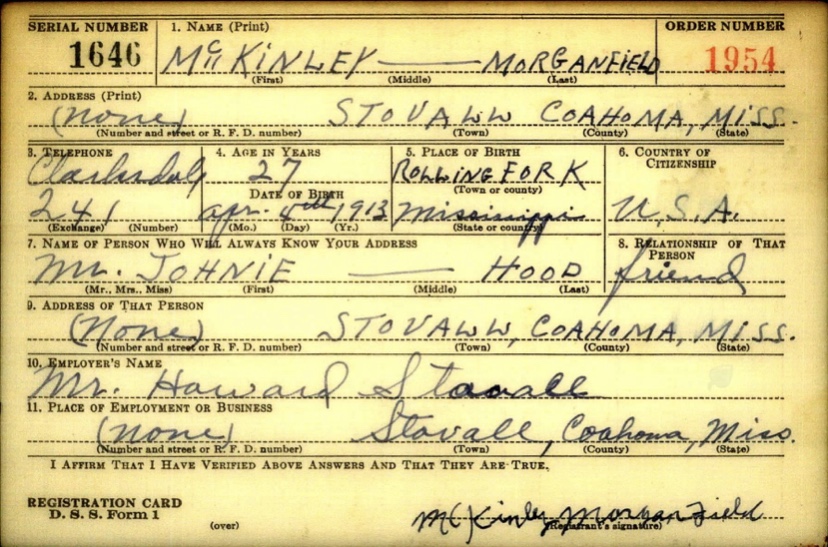 SERIAL NUMBER 1. NAME (Print) ORDER NUMBER
1646 McKINLEY —— MORGANFIELD 1954
(First) (Middle) (Last)
2. ADDRESS (Print)
(None) STOVALL COAHOMA, MISS.
(Number and street or R. F. D. number) (Town) (County) (State)
3. TELEPHONE 4. AGE IN YEARS 5. PLACE OF BIRTH 6. COUNTRY OF CITIZENSHIP
Clarksdale 27 ROLLING FORK
(Town or county)
DATE OF BIRTH
241 apr. 4th, 1913 Mississippi U.S.A.
(Exchange) (Number) (Mo.) (Day) (Yr.) (State or country)
7. NAME OF PERSON WHO WILL ALWAYS KNOW YOUR ADDRESS 8. RELATIONSHIP OF THAT PERSON
Mr. JOHNIE —— HOOD friend
(Mr., Mrs., Miss) (First) (Middle) (Last)
9. ADDRESS OF THAT PERSON
(None) STOVALL, COAHOMA, MISS.
(Number and street or R. F. D. number) (Town) (County) (State)
10. EMPLOYER'S NAME
Mr. Howard Stovall
11. PLACE OF EMPLOYMENT OR BUSINESS
(None) Stovall, Coahoma, Miss.
(Number and street or R. F. D. number) (Town) (County) (State)
I AFFIRM THAT I HAVE VERIFIED ABOVE ANSWERS AND THAT THEY ARE TRUE.
REGISTRATION CARD
D. S. S. Form 1
(over) McKinley Morganfield
(Registrant's signature)